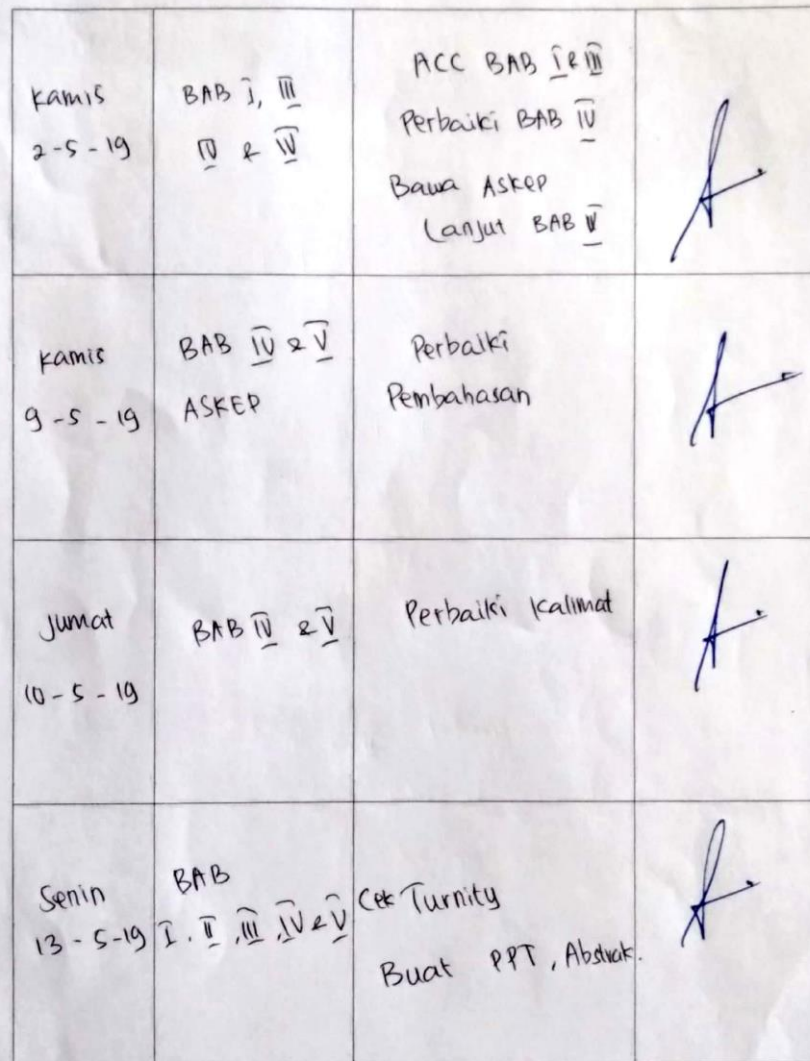 Kamis
2-5-19
BAB I, III
IV & IV
ACC BAB I & III
Perbaiki BAB IV
Bawa Askep
Lanjut BAB V
Kamis
9-5-19
BAB IV & V
ASKEP
Perbaiki
Pembahasan
Jumat
10-5-19
BAB IV & V
Perbaiki Kalimat
Senin
13-5-19
BAB
I. II, III, IV & V
Cek Turnity
Buat PPT, Abstrak.